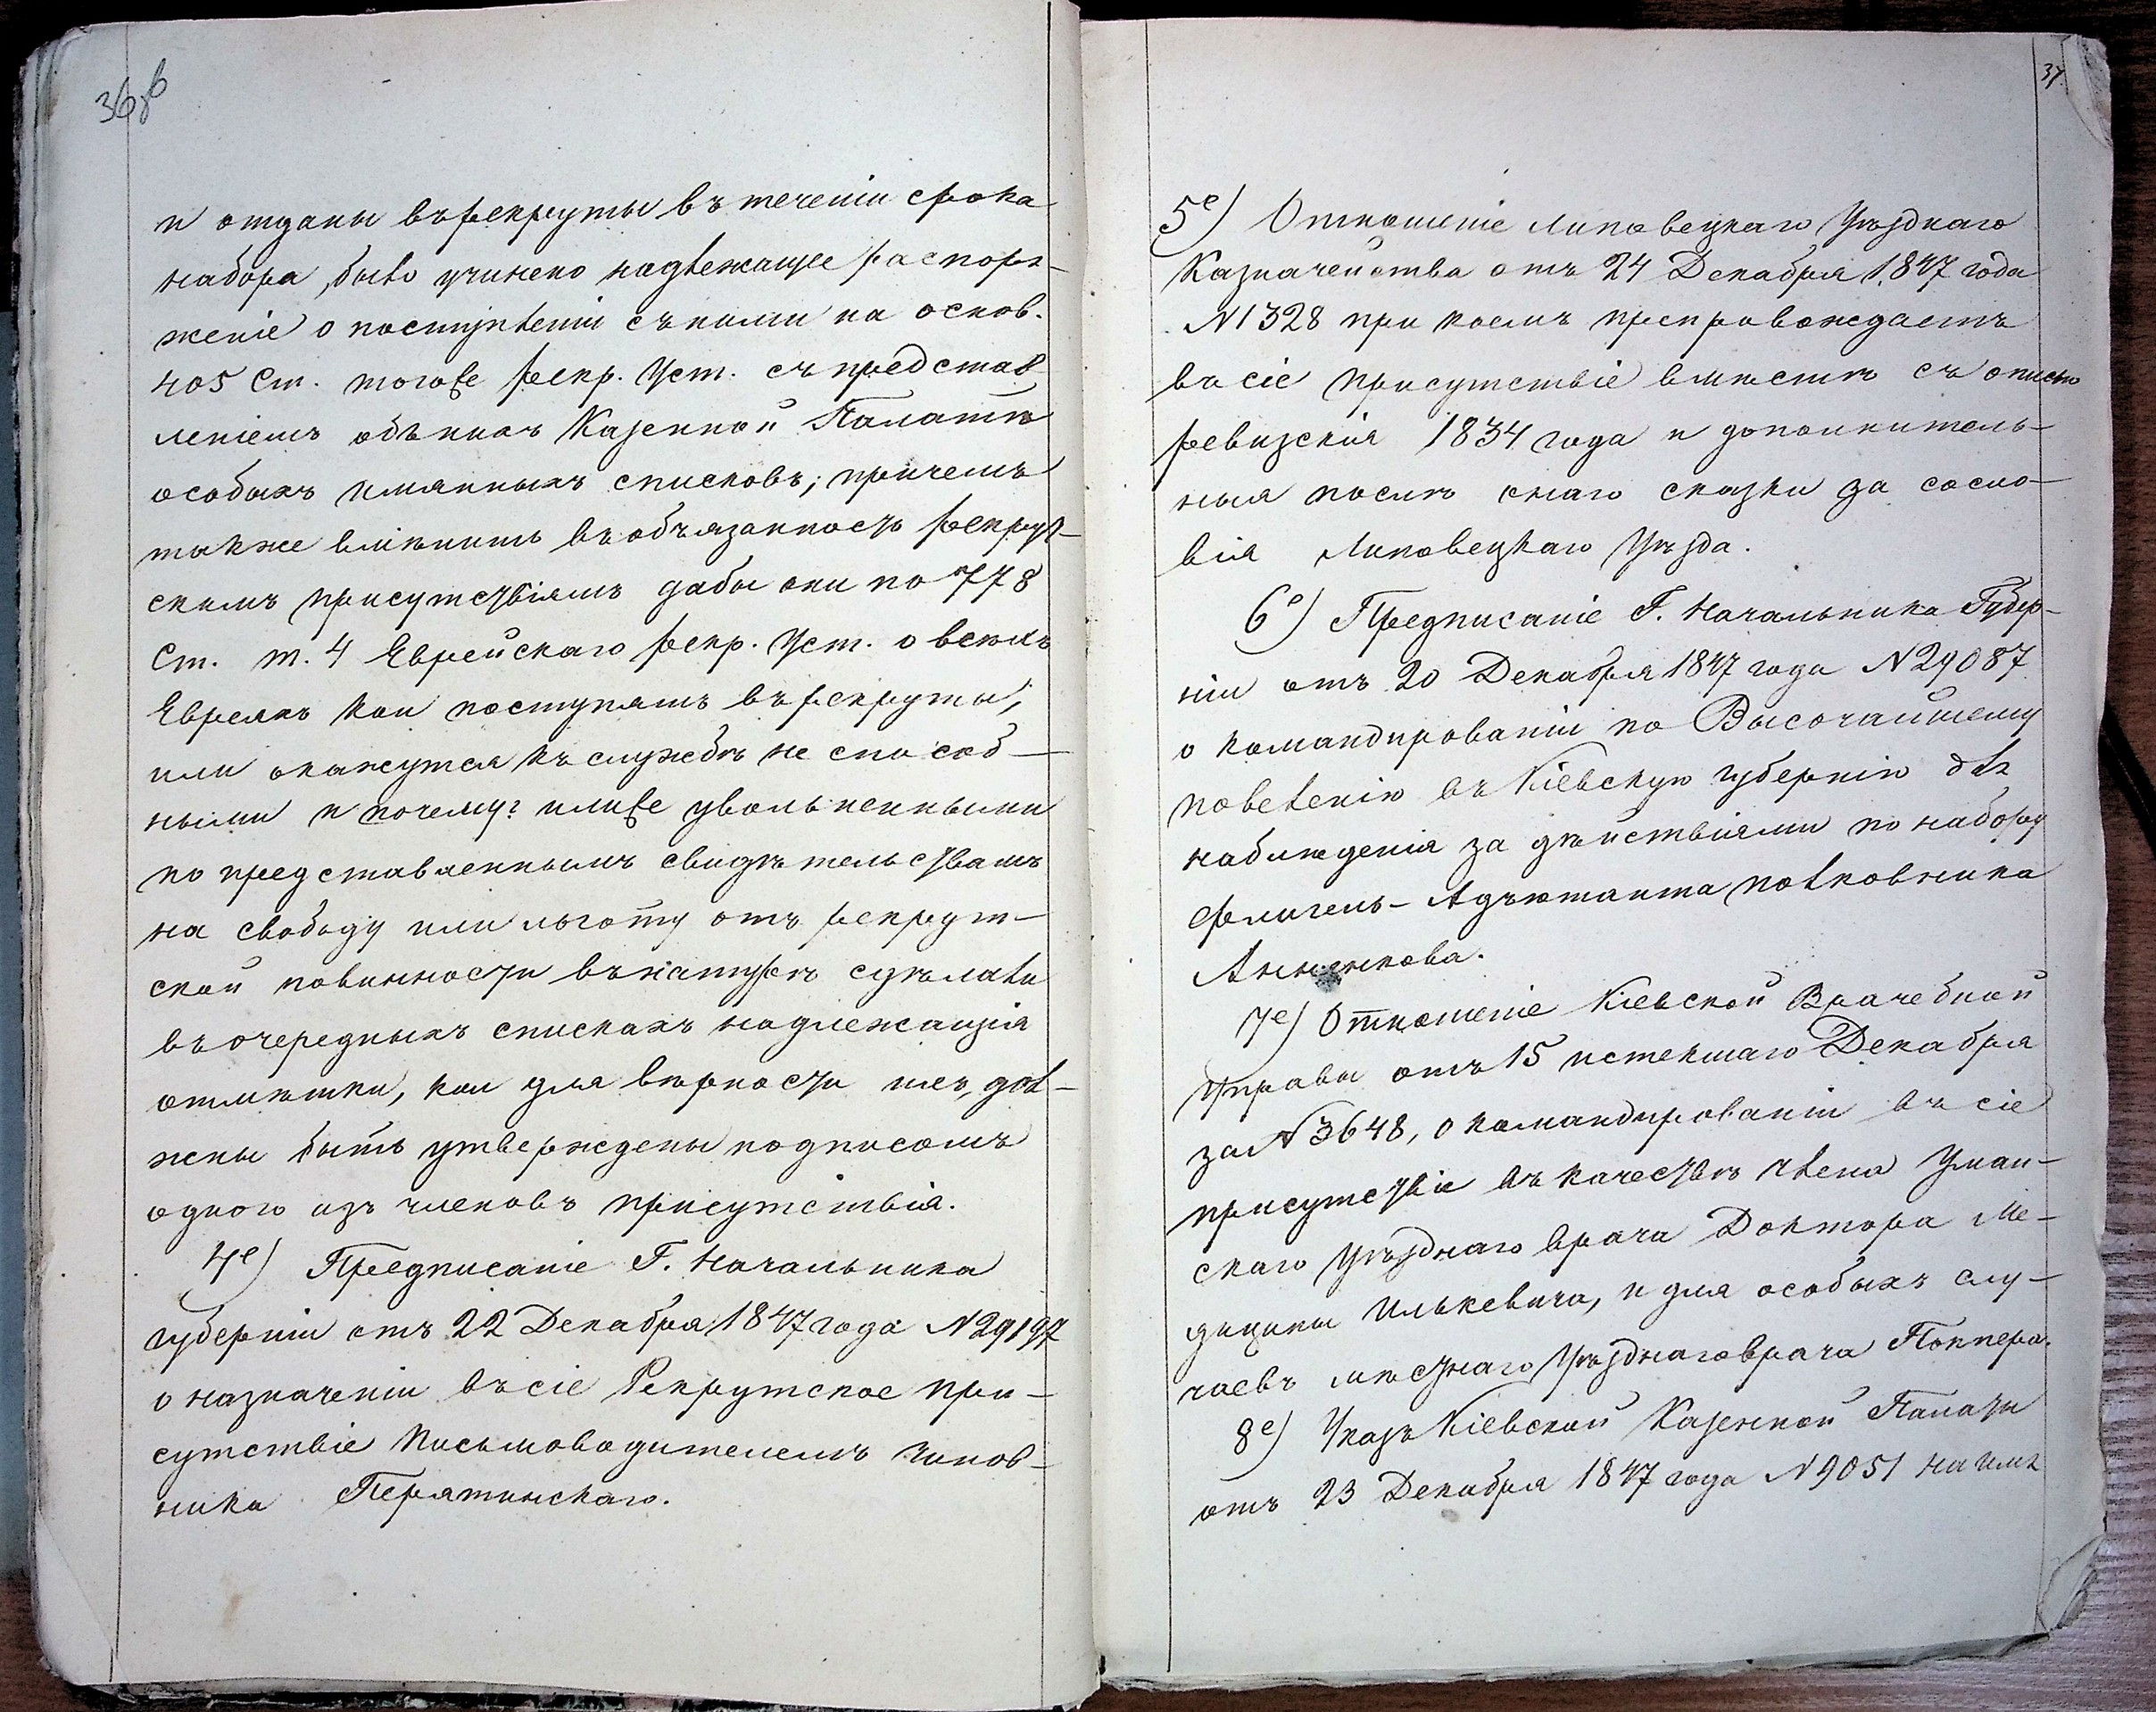 36об
и отданы въ рекруты въ теченіи срока
набора, было учинено надлежащее распоря-
женіе о поступленіи съ ними на основ.
405 Ст. тогоже рекр. Уст. съ представ
леніемъ объ нихъ Казенной Палатѣ
особыхъ имянныхъ списковъ; причемъ
также вмѣнить въ обязанность рекрут-
скимъ присутствіямъ дабы они по 778
Ст. т. 4 Еврейскаго рекр. Уст. о всѣхъ
Евреяхъ кои поступятъ въ рекруты,
или окажутся къ службѣ не способ-
ными и почему? илиже увольненными
по представленнымъ свидѣтельствамъ
на свободу или льготу отъ рекрут-
ской повинности въ натурѣ сдѣлали
въ очередныхъ спискахъ надлежащія
отмѣтки, кои для вѣрности ихъ, дол-
жны быть утверждены подписомъ
одного изъ членовъ присутствія.
4е) Предписаніе Г. Начальника
губерніи отъ 22 Декабря 1847 года N 29197
о назначеніи въ сіе Рекрутское при-
сутствіе Письмоводителемъ чинов-
ника Пирятинскаго.
37.
5е) Отношеніе Липовецкаго Уѣзднаго
Казначейства отъ 24 Декабря 1847 года
N 1328 при коемъ препровождаетъ
въ сіе присутствіе вмѣстѣ съ описью
ревизскія 1834 года и дополнитель-
ныя послѣ онаго сказки за сосло-
вія Липовецкаго Уѣзда.
6е) Предписаніе Г. Начальника Губер-
ніи отъ 20 Декабря 1847 года N 29087
о командированіи по Высочайшему
повеленію въ Кіевскую губернію для
наблюденія за дѣйствіями по набору
Флигель-Адъютанта полковника
Анненкова.
7е) Отношеніе Кіевской Врачебной
Управы отъ 15 истекшаго Декабря
за N 3648, о командированіи въ сіе
присутствіе въ качествѣ члена Уман-
скаго Уѣзднаго врача Доктора Ме-
дицины Илькевича, и для особыхъ слу-
чаевъ мѣстнаго Уѣзднаго врача Поппера.
8е) Указъ Кіевской Казенной Палаты
отъ 23 Декабря 1847 года N 9051 на имя